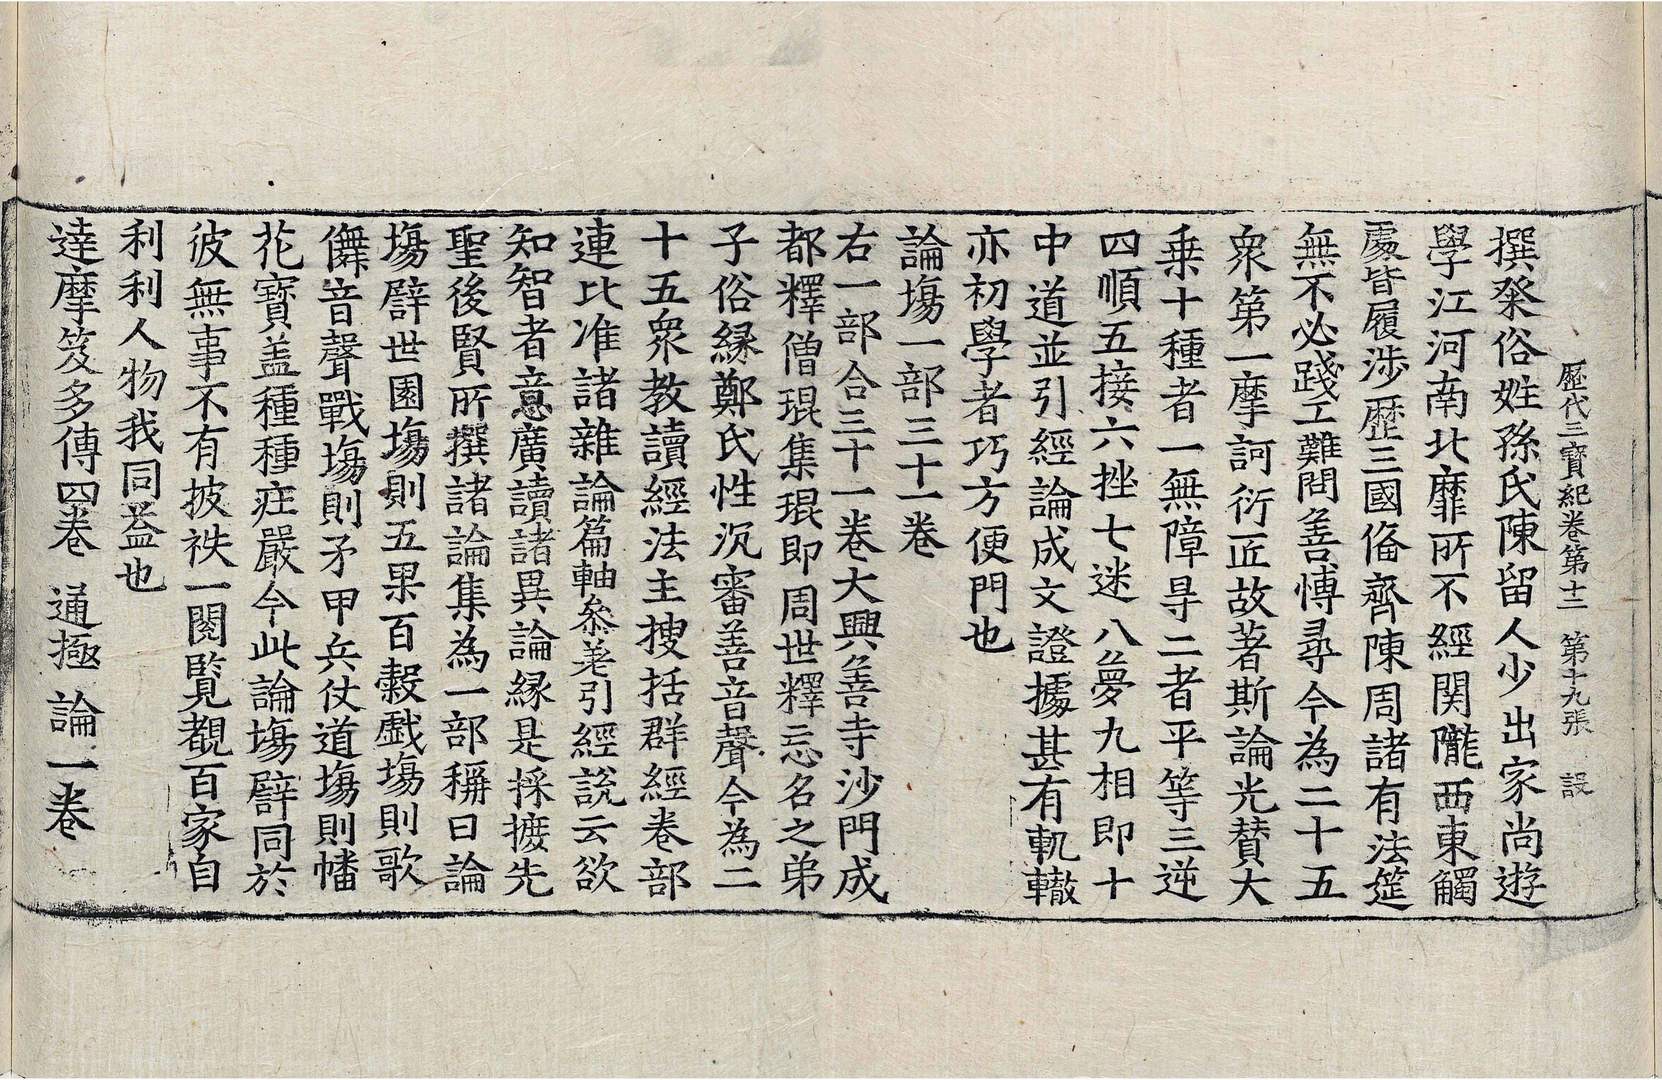 歷代三寶紀卷第十二 第十九張 設
撰粲俗姓孫氏陳留人少出家尚遊
學江河南北靡所不經関隴西東觸
處皆履涉歷三國俻齊陳周諸有法筵
無不必踐工難問善愽尋今為二十五
衆第一摩訶衍匠故著斯論光賛大
乗十種者一無障㝵二者平等三逆
四順五接六挫七迷八夢九相即十
中道並引經論成文證據甚有軌轍
亦初學者巧方便門也
論塲一部三十一卷
右一部合三十一卷大興善寺沙門成
都釋僧琨集琨即周世釋忘名之弟
子俗緣鄭氏性沉審善音聲今為二
十五衆教讀經法主搜括群經卷部
連比准諸雜論篇軸叅差引經說云欲
知智者意廣讀諸異論緣是採摭先
聖後賢所撰諸論集為一部稱曰論
塲譬世園塲則五果百糓戯塲則歌
儛音聲戰塲則矛甲兵仗道塲則幡
花寶盖種種庄嚴今此論塲譬同於
彼無事不有披袟一閱覧覩百家自
利利人物我同益也
達摩笈多傳四卷 通極論一卷